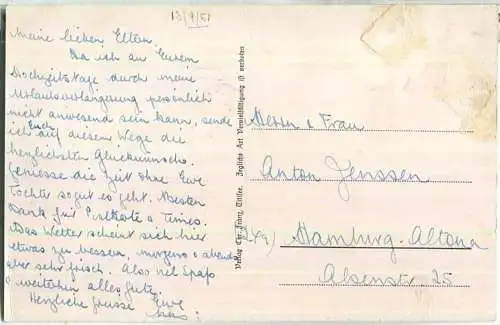 13/9/51
Meine lieben Eltern,
Da ich zu Eurem
Hochzeitstage durch meine
Urlaubsverlängerung persönlich
nicht anwesend sein kann, sende
ich Euch auf diesem Wege die
herzlichsten Glückwünsche.
Geniesse die Zeit ohne Eure
Tochter so gut es geht. Besten
Dank für Postkarte u Times.
Das Wetter scheint sich hier
etwas zu bessern, morgens u abends
aber sehr frisch. Also viel Spaß
u weiterhin alles Gute.
Herzliche Grüsse Eure
Verlag Chr. Franz, Titisee. Jegliche Art Vervielfältigung ist verboten
Herrn u Frau
Anton Jenssen
Hamburg-Altona
Alsenstr 25